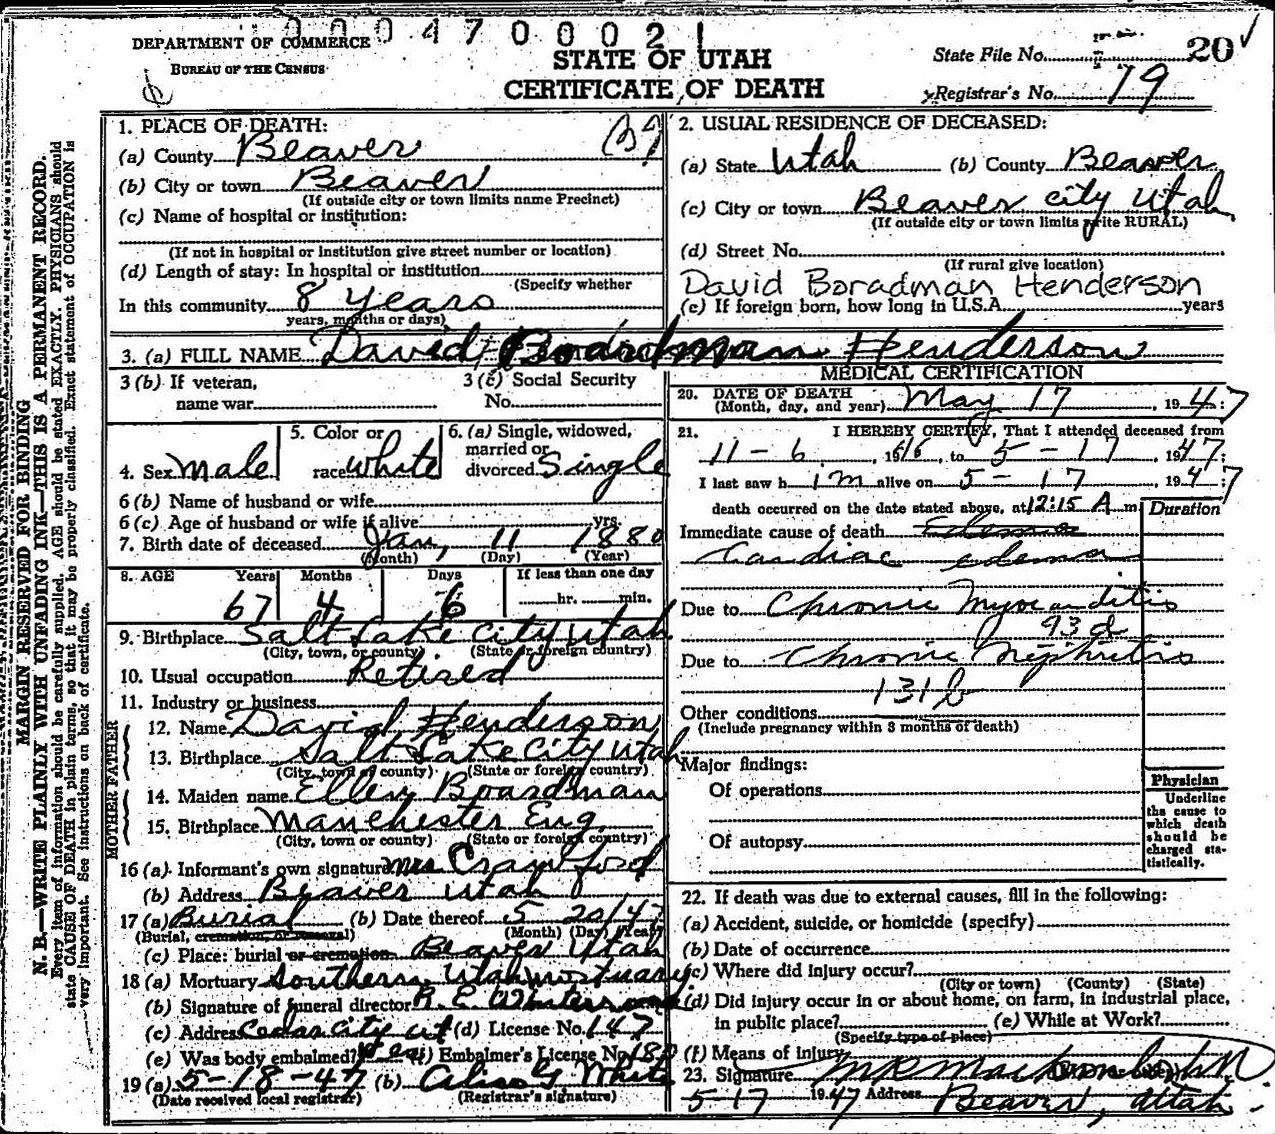 000470002
DEPARTMENT OF COMMERCE
BUREAU OF THE CENSUS
STATE OF UTAH
CERTIFICATE OF DEATH
State File No. 20
Registrar's No. 19
MARGIN RESERVED FOR BINDING
N. B.—WRITE PLAINLY WITH UNFADING INK—THIS IS A PERMANENT RECORD.
Every item of information should be carefully supplied. AGE should be stated EXACTLY. PHYSICIANS should
state CAUSE OF DEATH in plain terms, so that it may be properly classified. Exact statement of OCCUPATION is
very important. See instructions on back of certificate.
1. PLACE OF DEATH:
(a) County Beaver
(b) City or town Beaver
(If outside city or town limits name Precinct)
(c) Name of hospital or institution:
(If not in hospital or institution give street number or location)
(d) Length of stay: In hospital or institution
(Specify whether
In this community 8 years
years, months or days)
2. USUAL RESIDENCE OF DECEASED:
(a) State Utah (b) County Beaver
(c) City or town Beaver city Utah
(If outside city or town limits write RURAL)
(d) Street No.
(If rural give location)
David Boradman Henderson
(e) If foreign born, how long in U.S.A. years
3. (a) FULL NAME David Boardman Henderson
3 (b) If veteran, name war
3 (c) Social Security No.
4. Sex Male
5. Color or race white
6. (a) Single, widowed, married or divorced Single
6 (b) Name of husband or wife
6 (c) Age of husband or wife if alive yrs.
7. Birth date of deceased Jan, 11 1880
(Month) (Day) (Year)
8. AGE Years Months Days If less than one day
67 4 6 hr. min.
9. Birthplace Salt Lake City Utah
(City, town, or county) (State or foreign country)
10. Usual occupation Retired
11. Industry or business
FATHER
12. Name David Henderson
13. Birthplace Salt Lake City Utah
(City, town or county) (State or foreign country)
MOTHER
14. Maiden name Ellen Boardman
15. Birthplace Manchester Eng
(City, town or county) (State or foreign country)
16 (a) Informant's own signature Mrs Crawford
(b) Address Beaver Utah
17 (a) Burial (b) Date thereof 5 20/47
(Burial, cremation, or removal) (Month) (Day) (Year)
(c) Place: burial or cremation Beaver Utah
18 (a) Mortuary Southern Utah Mortuary
(b) Signature of funeral director R. E.
(c) Address Cedar City Ut (d) License No. 147
(e) Was body embalmed? Yes (f) Embalmer's License No. 180
19 (a) 5-18-47 (b) White
(Date received local registrar) (Registrar's signature)
MEDICAL CERTIFICATION
20. DATE OF DEATH
(Month, day, and year) May 17, 1947;
21. I HEREBY CERTIFY, That I attended deceased from
11-6, 1946, to 5-17 1947;
I last saw him alive on 5-17 1947;
death occurred on the date stated above, at 12:15 A m.
Duration
Immediate cause of death Edema
Cardiac edema
Due to Chronic Myocarditis
93d
Due to Chronic Nephritis
131b
Other conditions
(Include pregnancy within 3 months of death)
Major findings:
Of operations
Of autopsy
Physician
Underline
the cause to
which death
should be
charged sta-
tistically.
22. If death was due to external causes, fill in the following:
(a) Accident, suicide, or homicide (specify)
(b) Date of occurrence
(c) Where did injury occur?
(City or town) (County) (State)
(d) Did injury occur in or about home, on farm, in industrial place,
in public place? (e) While at Work?
(Specify type of place)
(f) Means of injury
23. Signature
5-17 1947 Address Beaver, Utah.